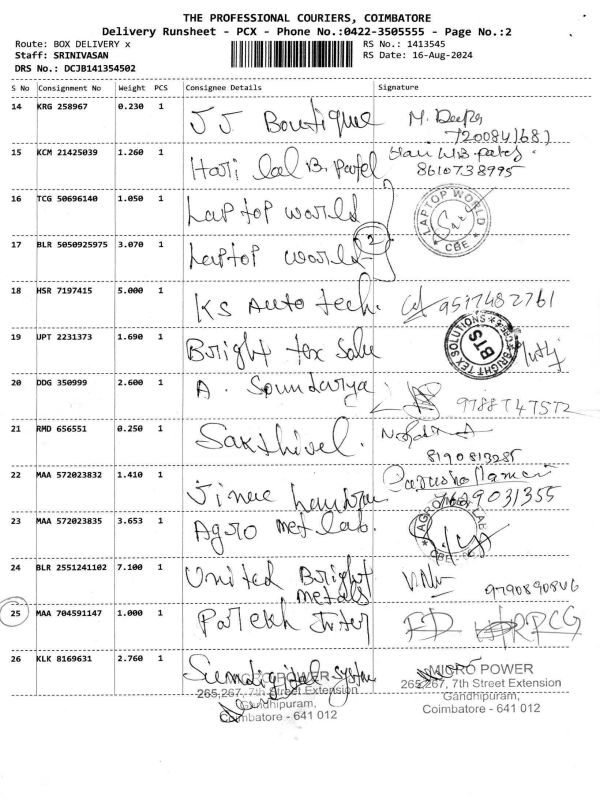 THE PROFESSIONAL COURIERS, COIMBATORE
Delivery Runsheet - PCX - Phone No.:0422-3505555 - Page No.:2
Route: BOX DELIVERY x RS No.: 1413545
Staff: SRINIVASAN RS Date: 16-Aug-2024
DRS No.: DCJB141354502
S No Consignment No Weight PCS Consignee Details Signature
14 KRG 258967 0.230 1 JJ Boutique M. Deepa
7200841681
15 KCM 21425039 1.260 1 Hari lal B. patel Hari lal B. patel
8610738995
16 TCG 50696140 1.050 1 Laptop world LAPTOP WORLD CBE
2
17 BLR 5050925975 3.070 1 Laptop world
18 HSR 7197415 5.000 1 KS Auto tech. 9517482761
19 UPT 2231373 1.690 1 Bright tex Solu BRIGHT TEX SOLUTIONS BTS
20 DDG 350999 2.600 1 A. Soundarya 9788747572
21 RMD 656551 0.250 1 Sakthivel.
8190813285
22 MAA 572023832 1.410 1 7629031355
23 MAA 572023835 3.653 1 Agro met lab. AGRO LAB CBE
24 BLR 2551241102 7.100 1 United Bright metals
25 MAA 704591147 1.000 1 Parekh Inter
26 KLK 8169631 2.760 1 system MICRO POWER
265,267, 7th Street Extension 265,267, 7th Street Extension
Gandhipuram, Gandhipuram,
Coimbatore - 641 012 Coimbatore - 641 012